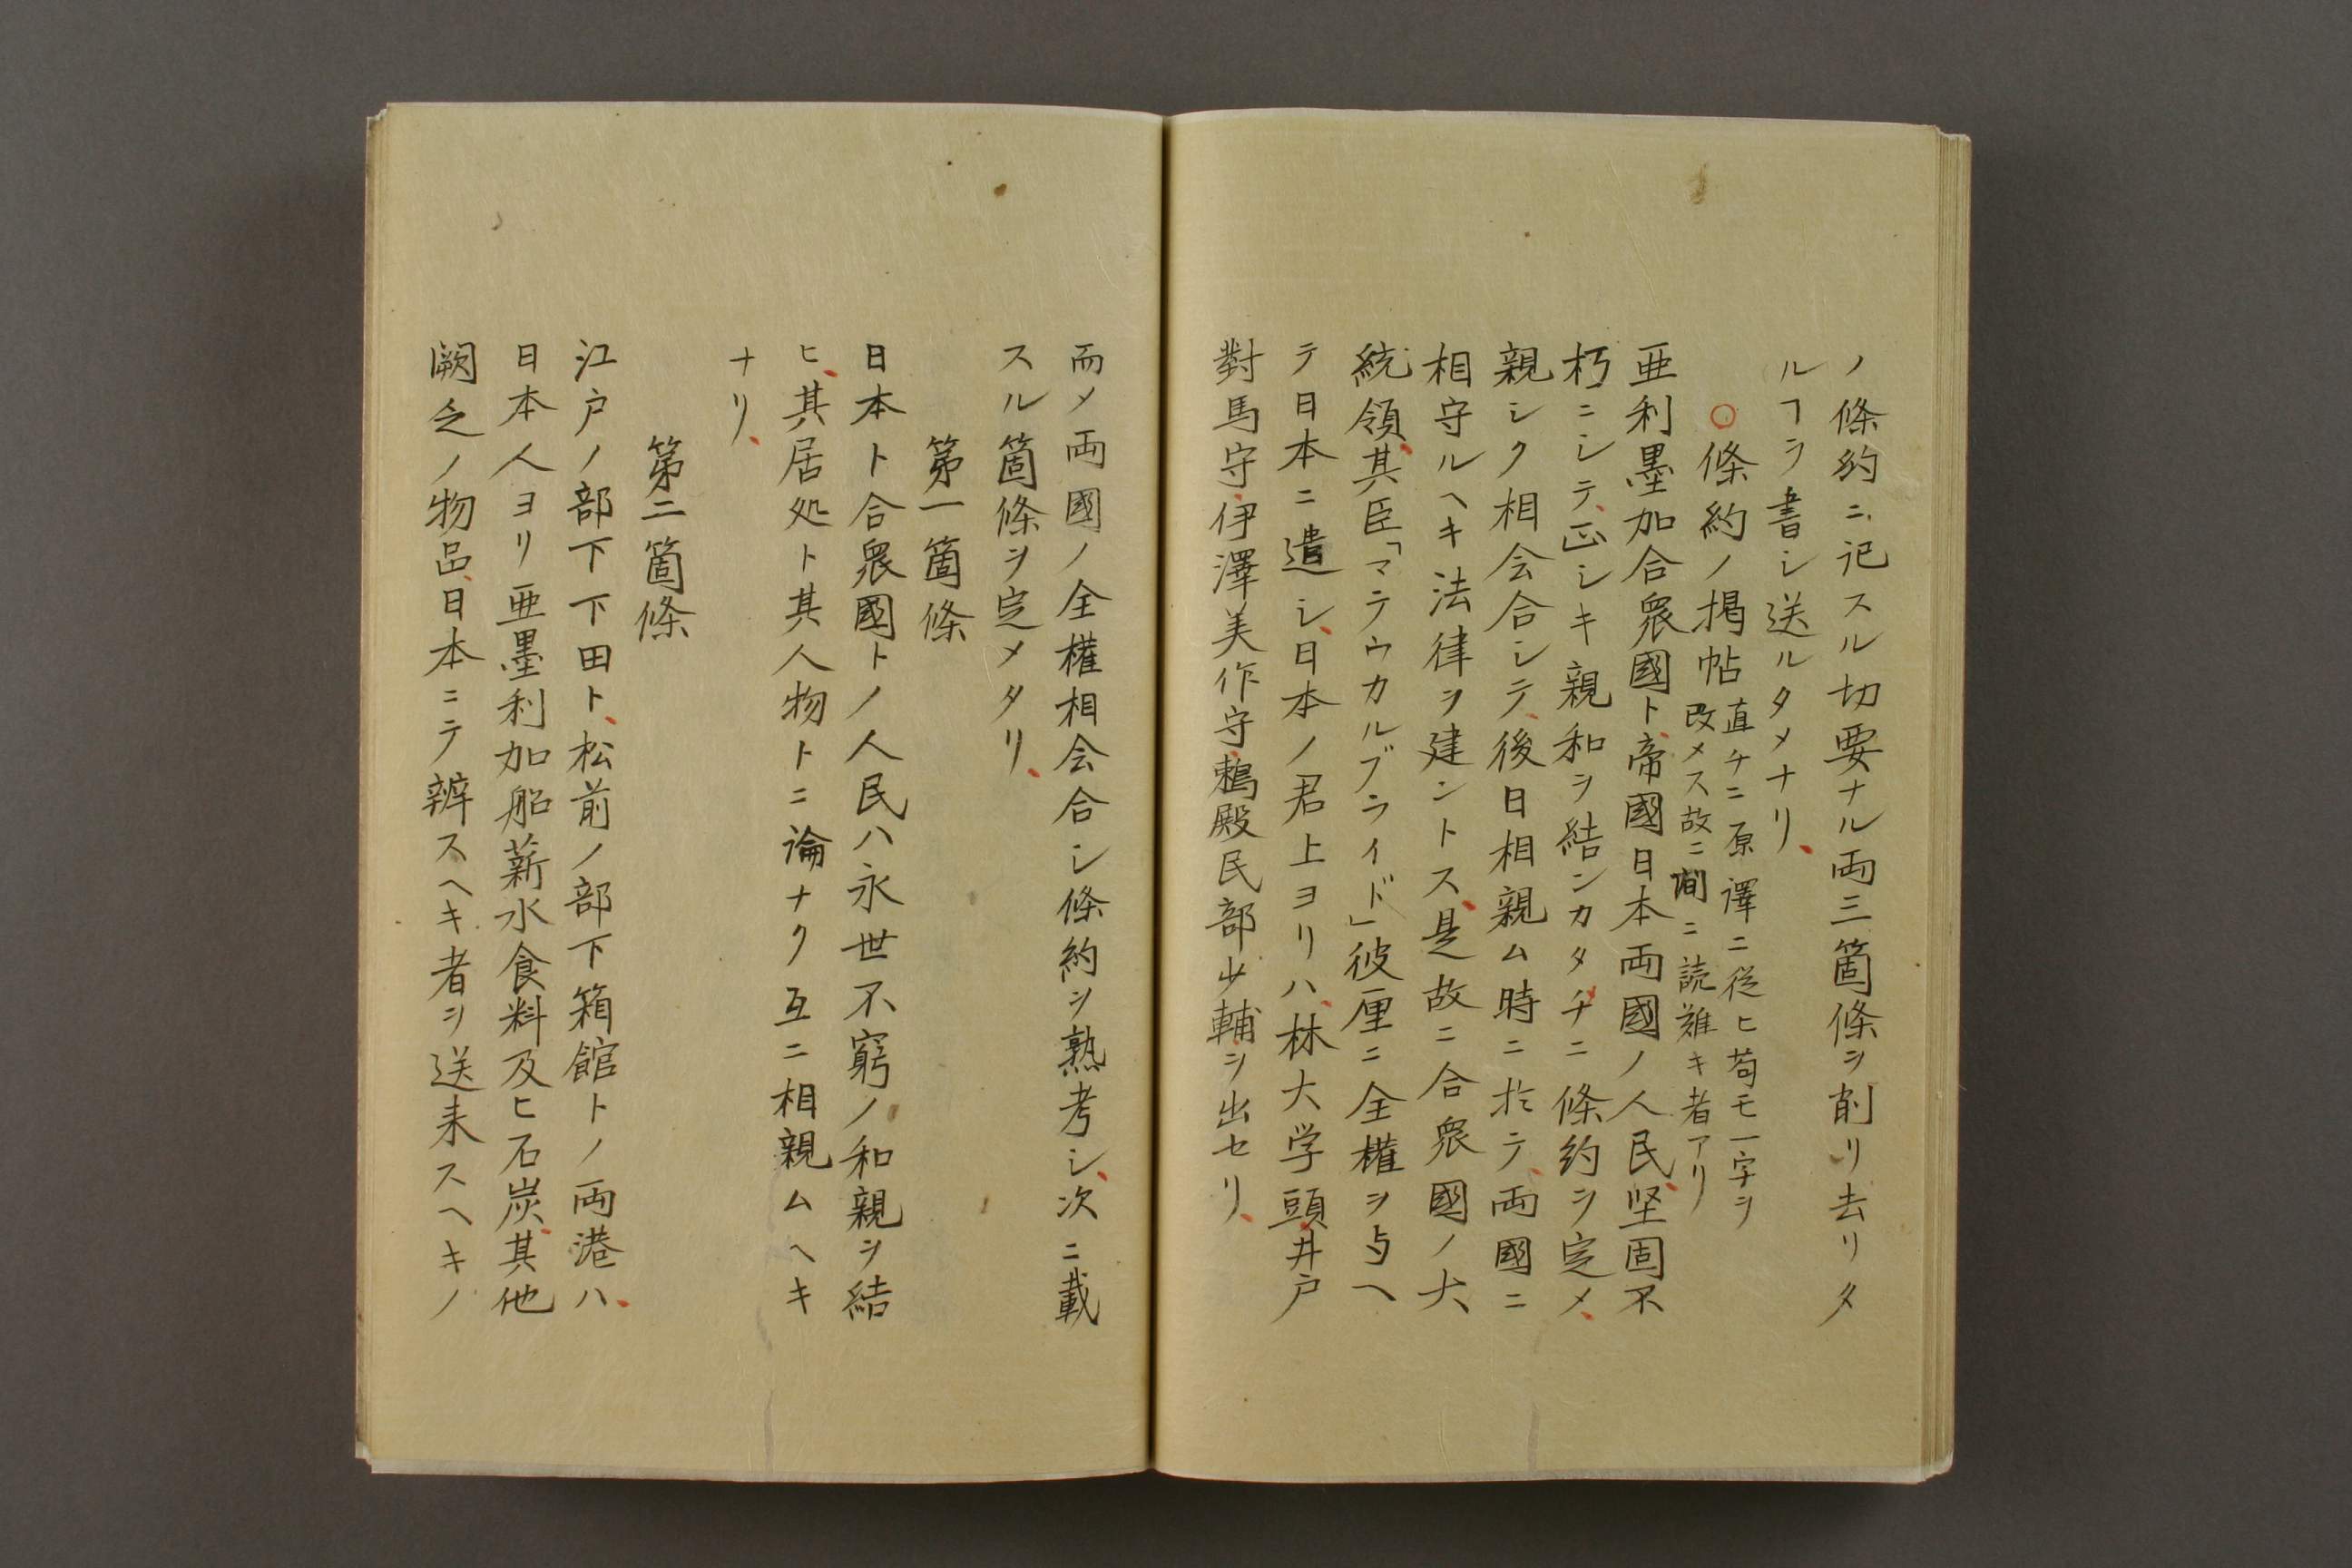 ノ條約ニ記スル切要ナル両三箇條ヲ削リ去リタ
ルヿヲ書シ送ルタメナリ、
○條約ノ掲帖
直チニ原譯ニ從ヒ苟モ一字ヲ
改メス故ニ間ニ読難キ者アリ
亜利墨加合衆國ト、帝國日本両國ノ人民、堅固不
朽ニシテ、正シキ親和ヲ結ンカタメニ條約ヲ定メ、
親シク相会合シテ、後日相親ム時ニ於テ、両國ニ
相守ルヘキ法律ヲ建ントス、是故ニ合衆國ノ大
統領、其臣「マテウカルブライド」彼理ニ全權ヲ与ヘ
テ日本ニ遣シ、日本ノ君上ヨリハ、林大学頭、井戸
對馬守、伊澤美作守、鵜殿民部少輔ヲ出セリ、
而メ両國ノ全權相会合シ條約ヲ熟考シ、次ニ載
スル箇條ヲ定メタリ、
第一箇條
日本ト合衆國トノ人民ハ永世不窮ノ和親ヲ結
ヒ、其居処ト其人物トニ論ナク互ニ相親ムヘキ
ナリ、
第二箇條
江戸ノ部下下田ト、松前ノ部下箱館トノ両港ハ、
日本人ヨリ亜墨利加船薪水食料及ヒ石炭、其他
闕乏ノ物品、日本ニテ辨スヘキ者ヲ送来スヘキノ